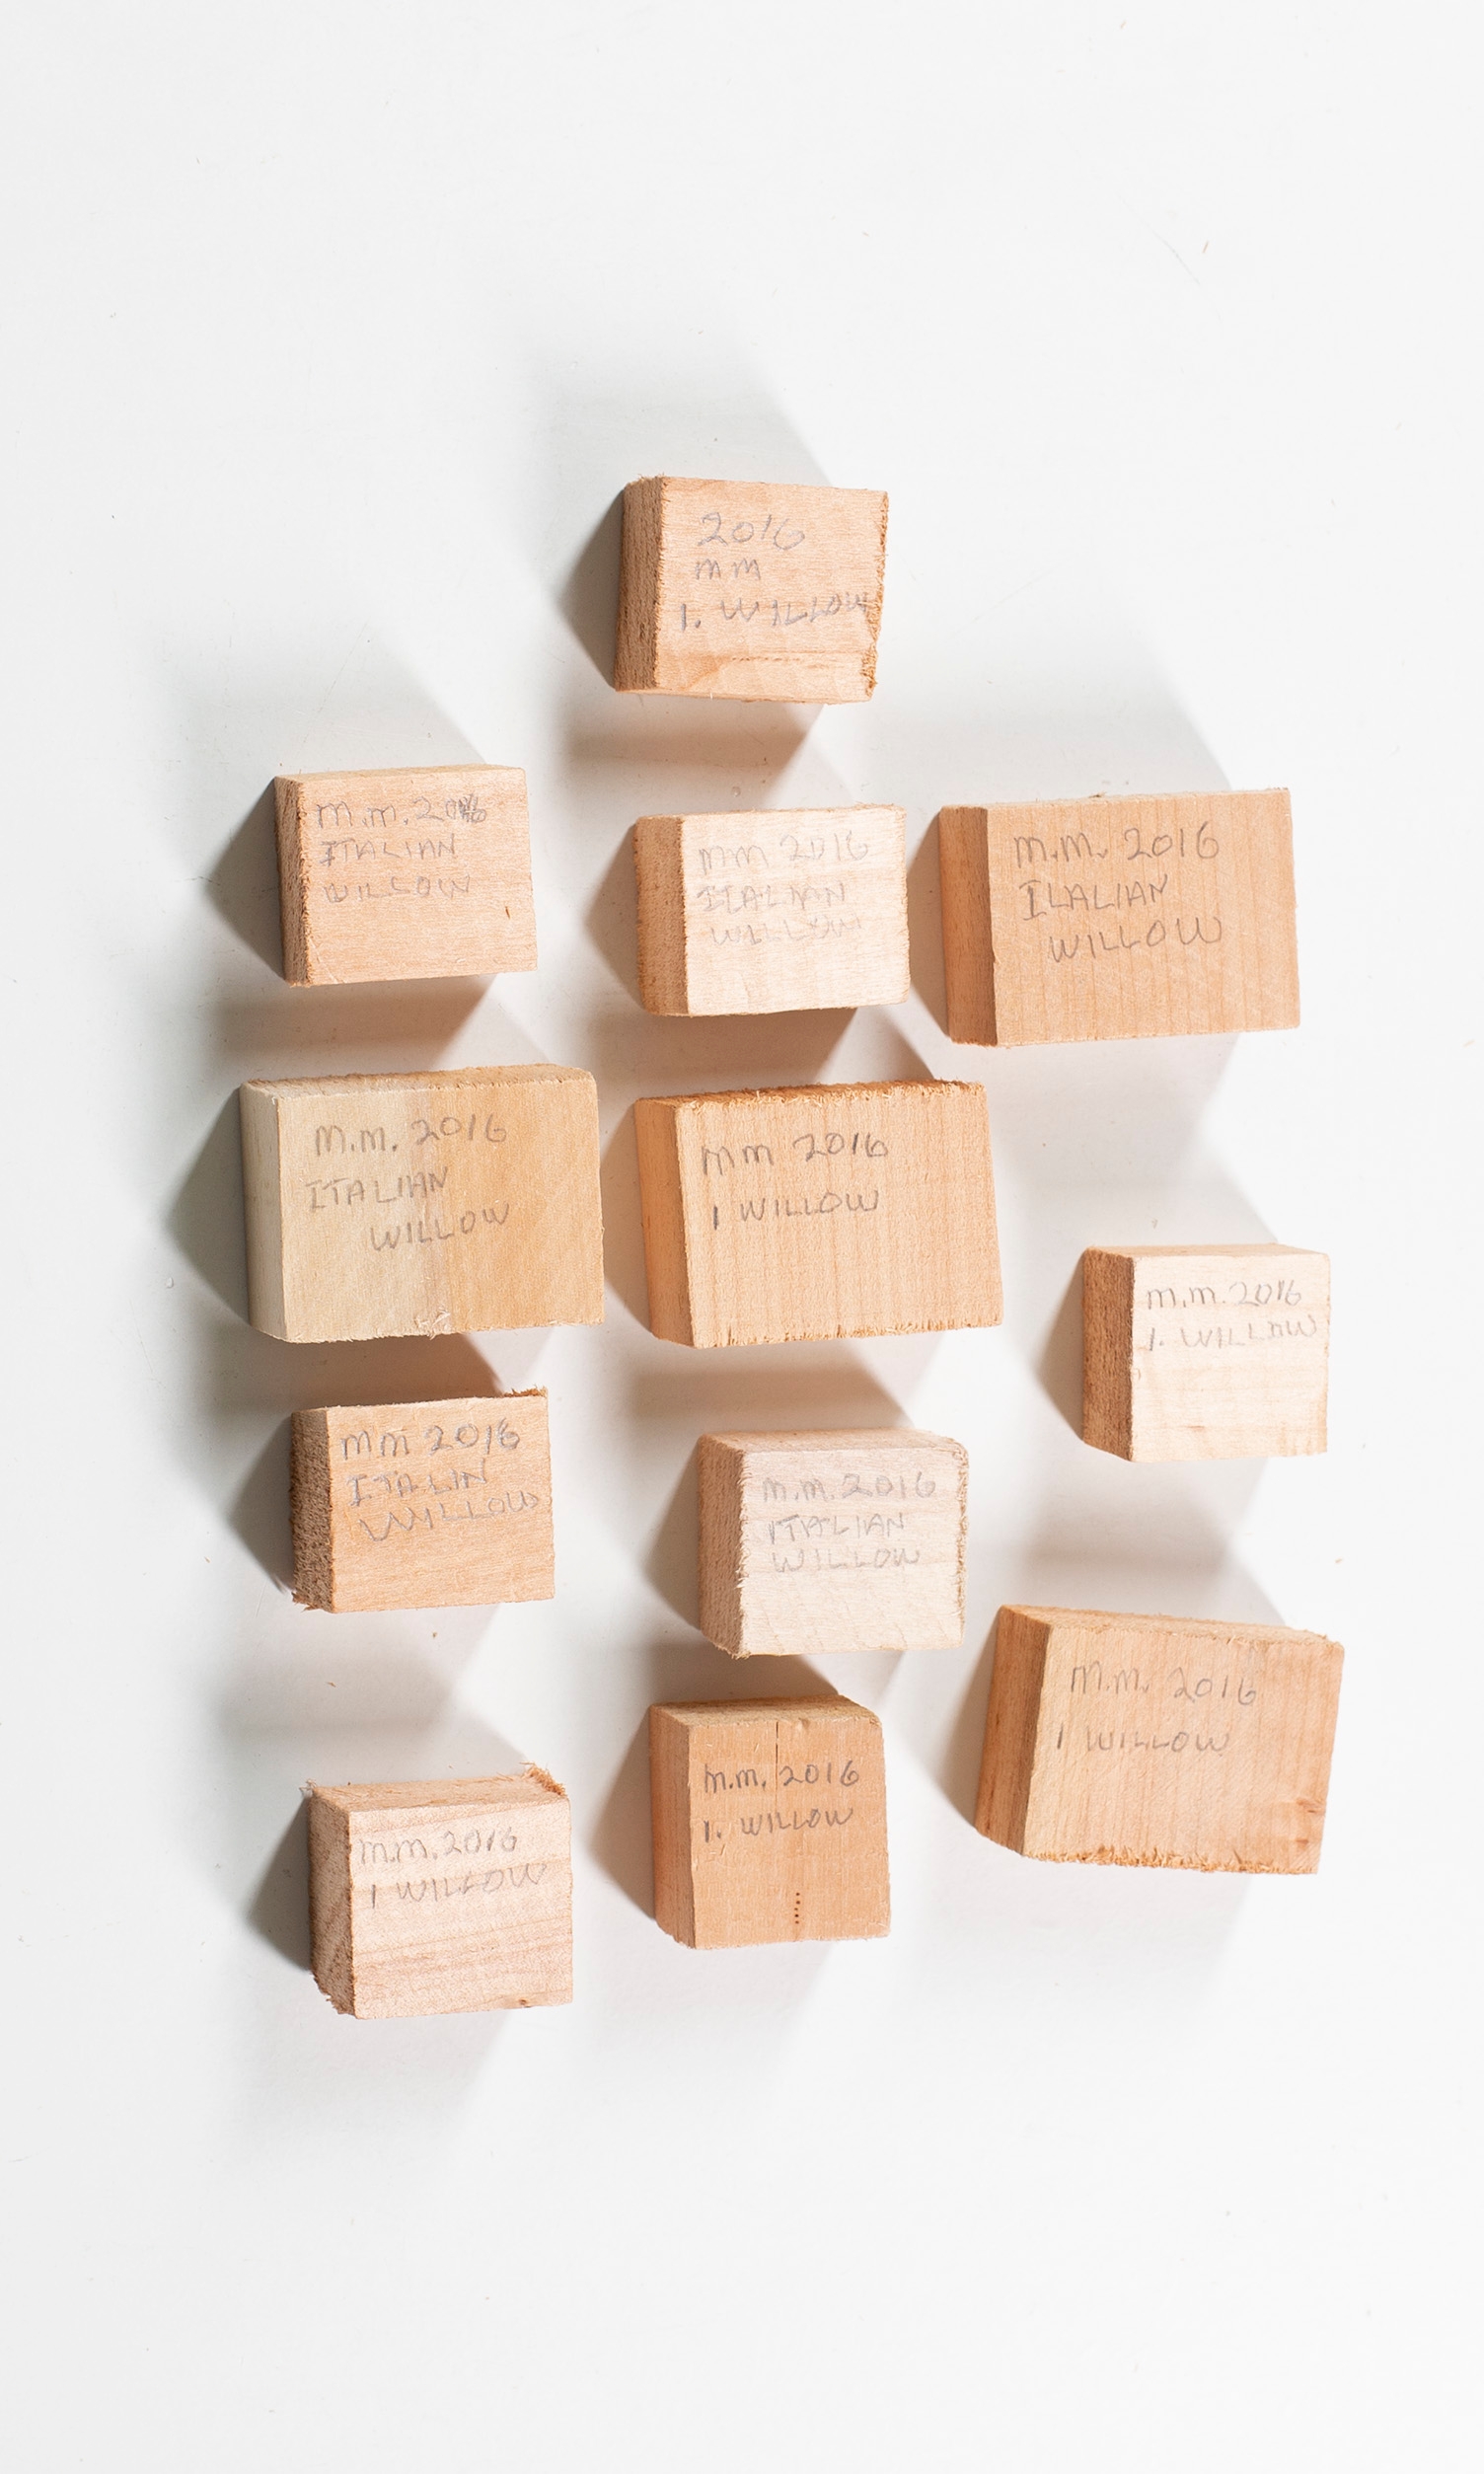 2016
MM
1. WILLOW
M.M. 2016
ITALIAN
WILLOW
MM 2016
ITALIAN
WILLOW
M.M. 2016
ILALIAN
WILLOW
M.M. 2016
ITALIAN
WILLOW
MM 2016
I WILLOW
M.M. 2016
I. WILLOW
MM 2016
ITALIN
WILLOW
M.M. 2016
ITALIAN
WILLOW
M.M. 2016
I WILLOW
M.M. 2016
I. WILLOW
M.M. 2016
I WILLOW